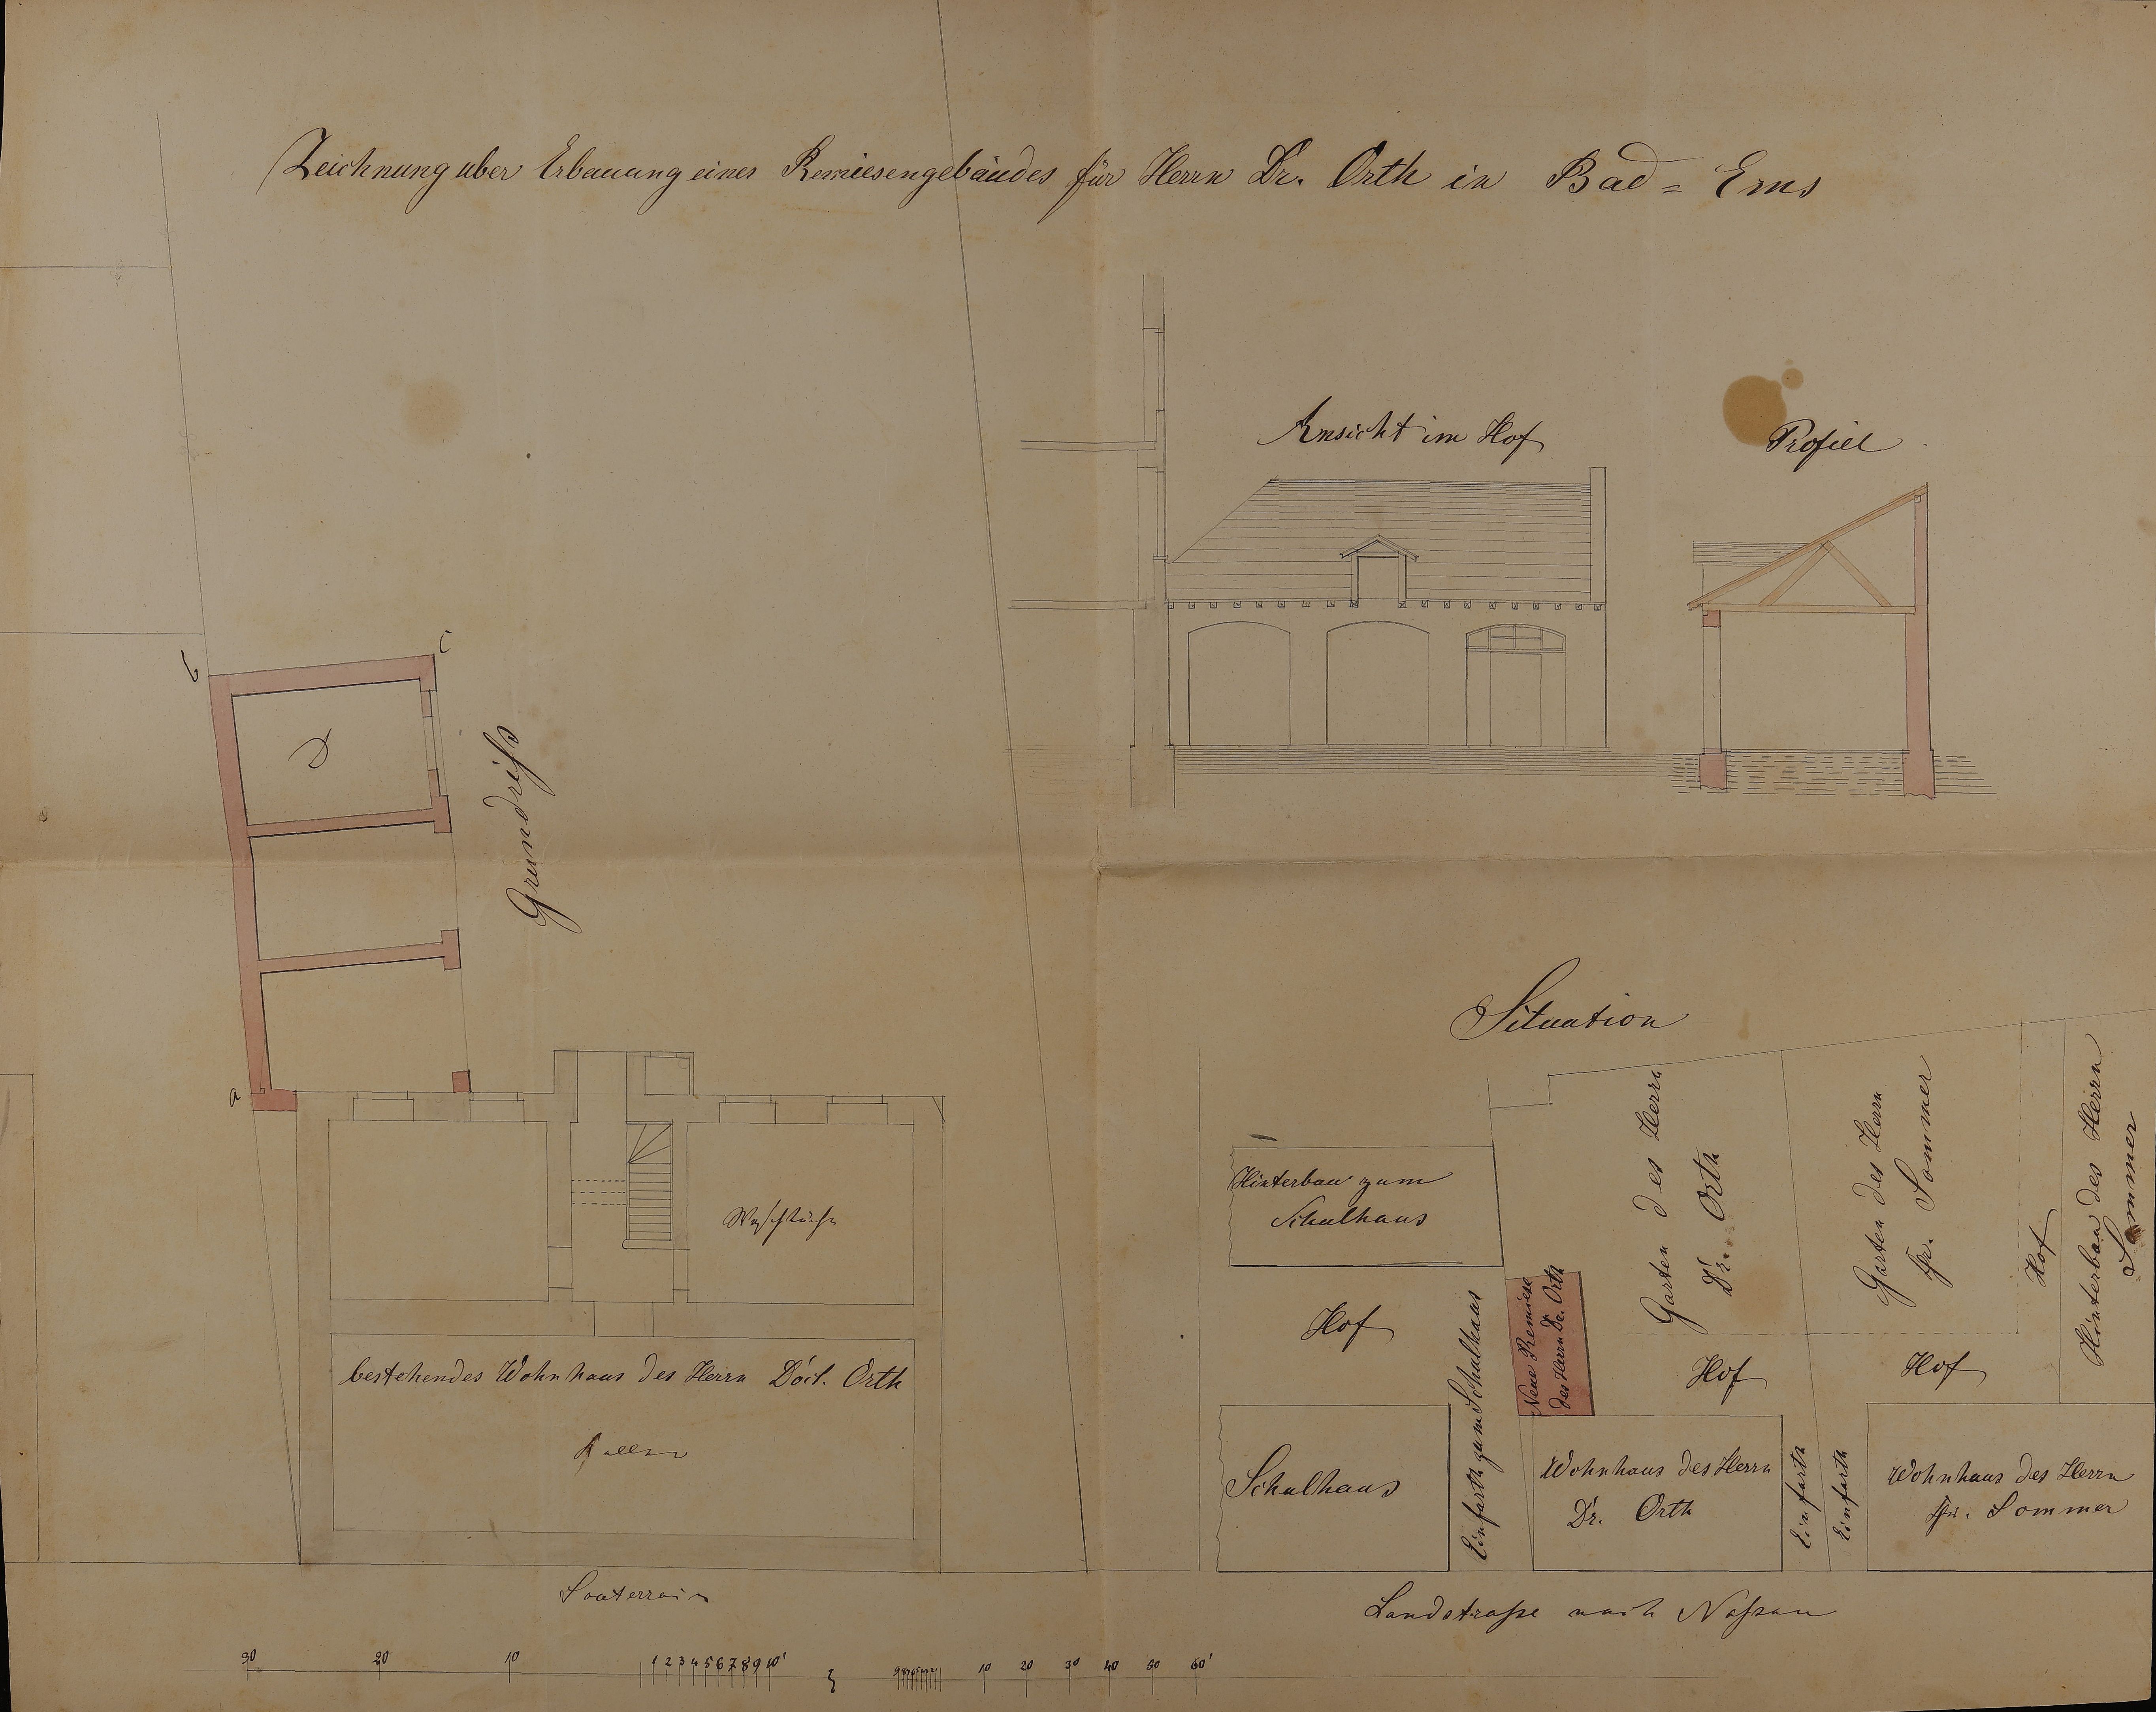 Zeichnung uber Erbauung eines Remiesengebäudes für Herrn Dr. Orth in Bad = Ems
Ansicht im Hof
Profiel
b
c
d
Grundriſs
a
Waschküche
bestehendes Wohnhaus des Herrn Doct. Orth
Keller
Souterrain
30 20 10 1 2 3 4 5 6 7 8 9 10'
10 20 30 40 50 60'
Situation
Hinterbau zum
Schulhaus
Hof
Schulhaus
Einfarth zum Schulhaus
Neue Remiese
des Herrn Dr. Orth
Garten des Herrn
Dr. Orth
Hof
Wohnhaus des Herrn
Dr. Orth
Einfarth
Einfarth
Garten des Herrn
Fr. Sommer
Hof
Hof
Hinterbau des Herrn
Sommer
Wohnhaus des Herrn
Fr. Sommer
Landstraſse nach Naſsau